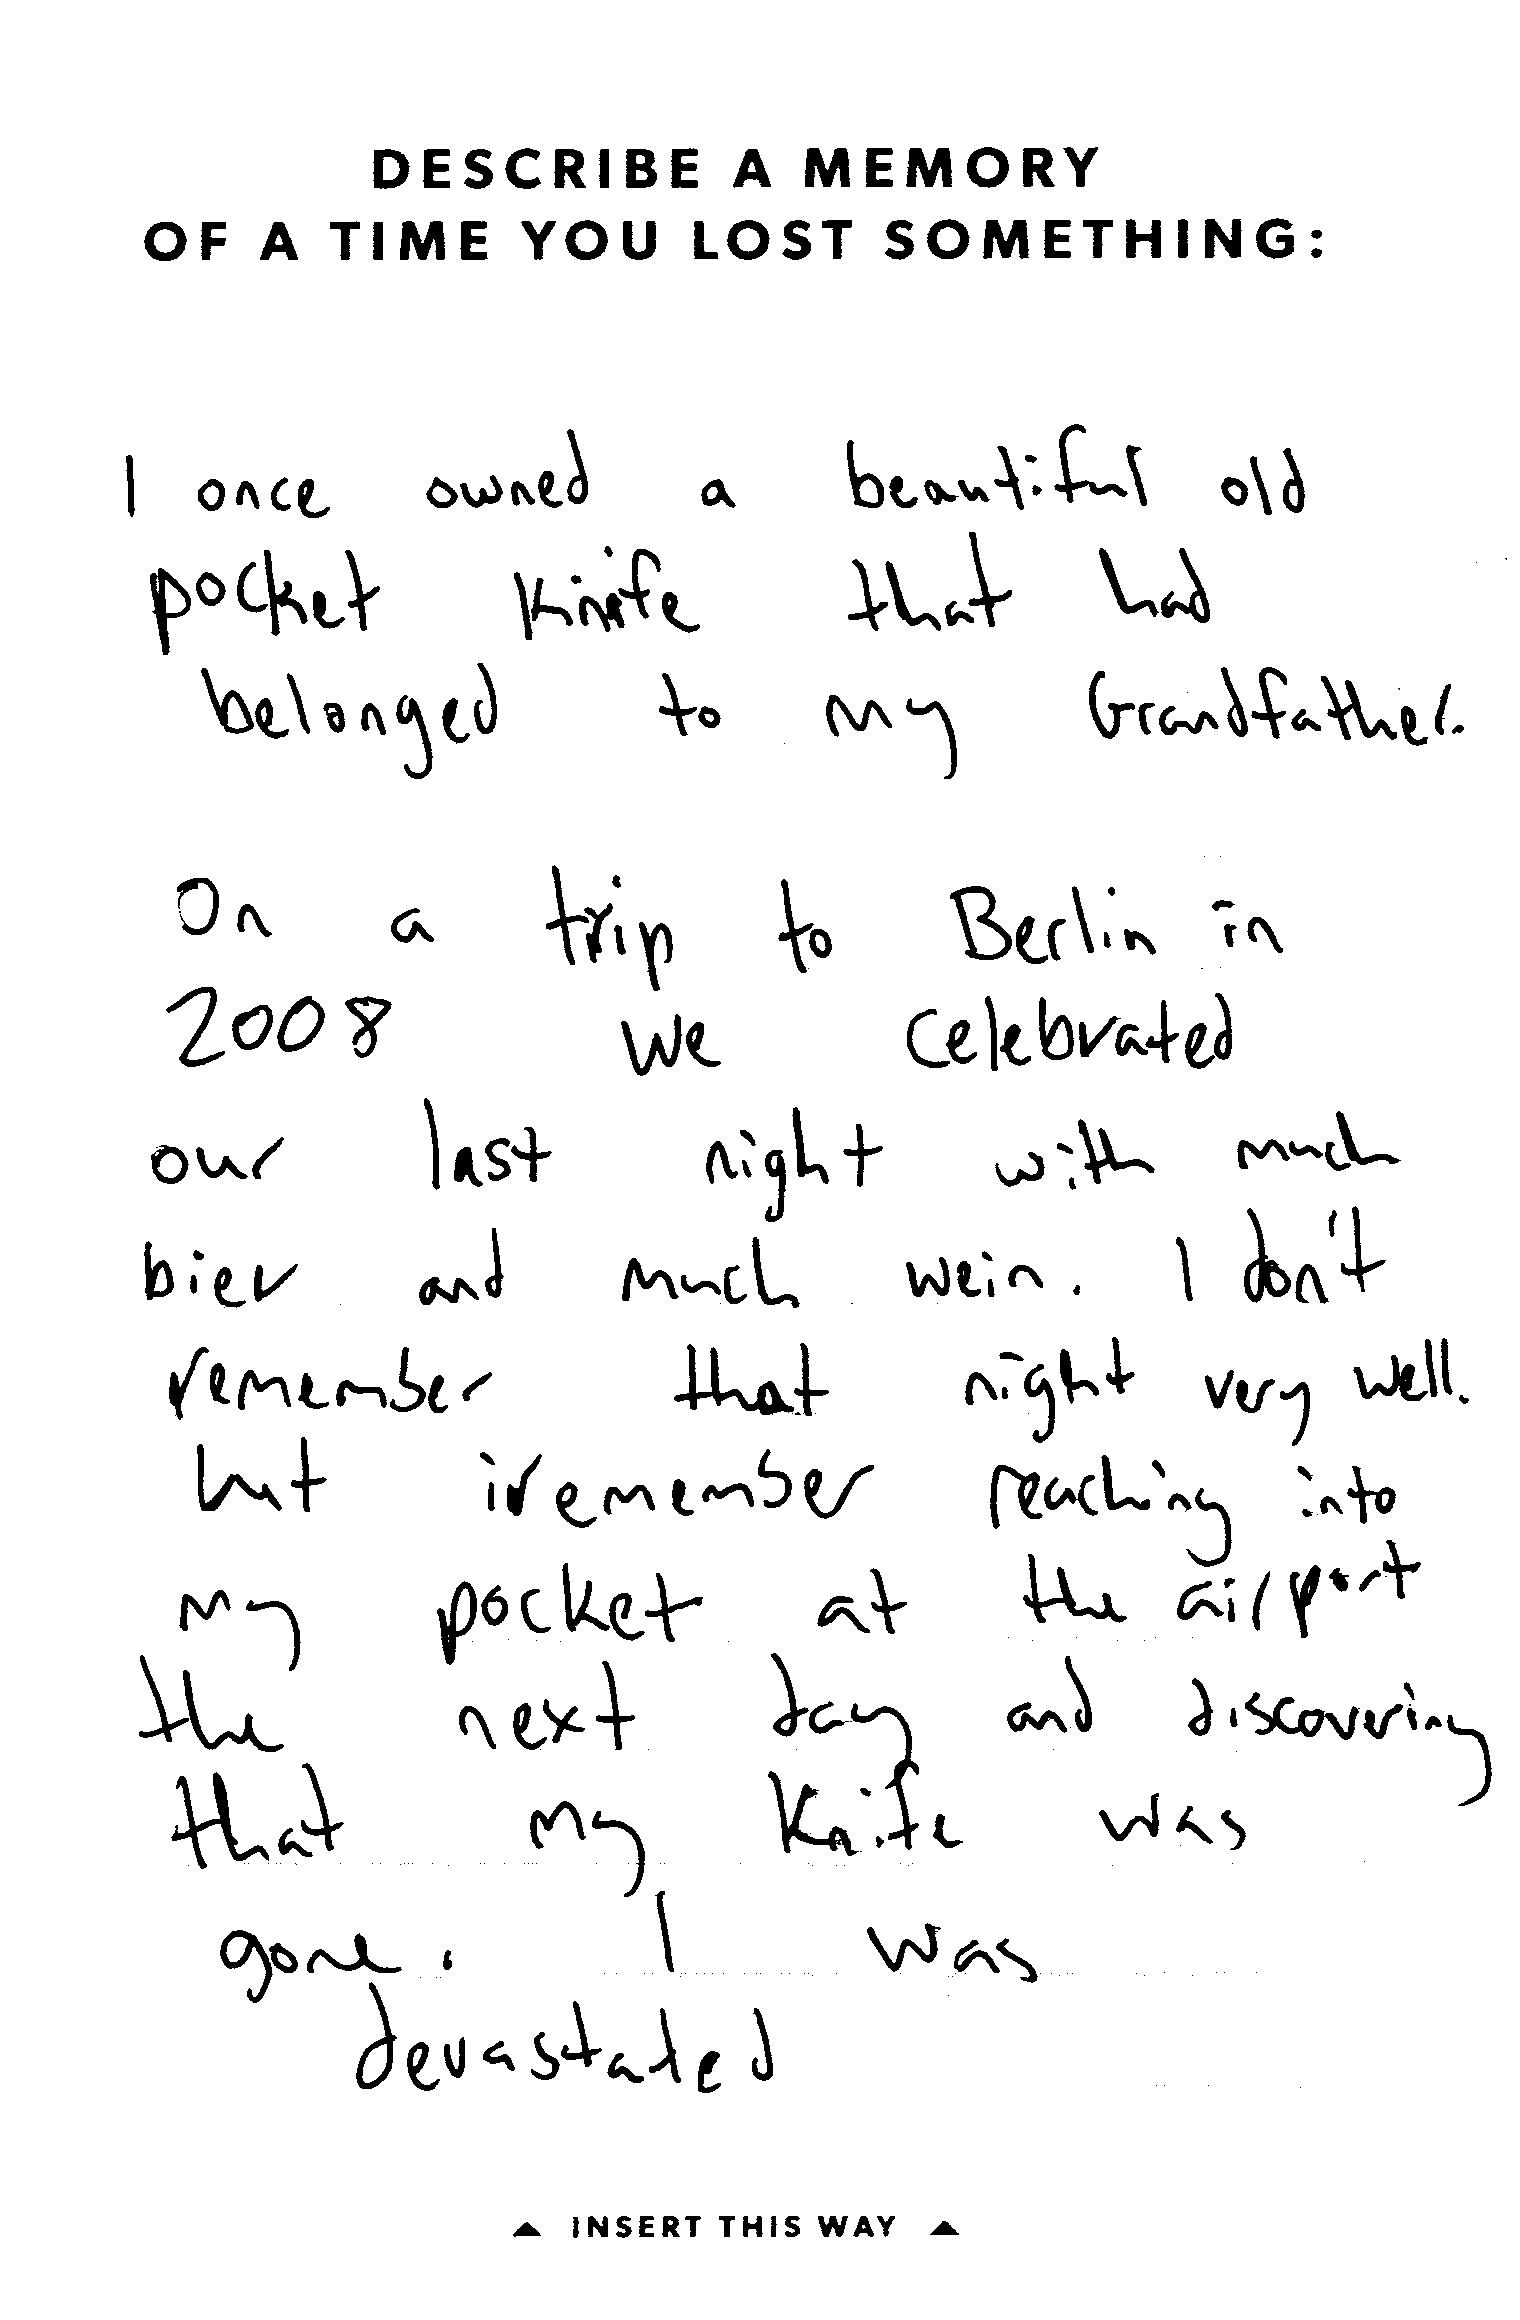 DESCRIBE A MEMORY
OF A TIME YOU LOST SOMETHING:
I once owned a beautiful old
pocket Knife that had
belonged to my Grandfather.
On a trip to Berlin in
2008 we celebrated
our last night with much
bier and much wein. I don't
remember that night very well.
but i remember reaching into
my pocket at the airport
the next day and discovering
that my Knife was
gone. I was
devastated
▲ INSERT THIS WAY ▲